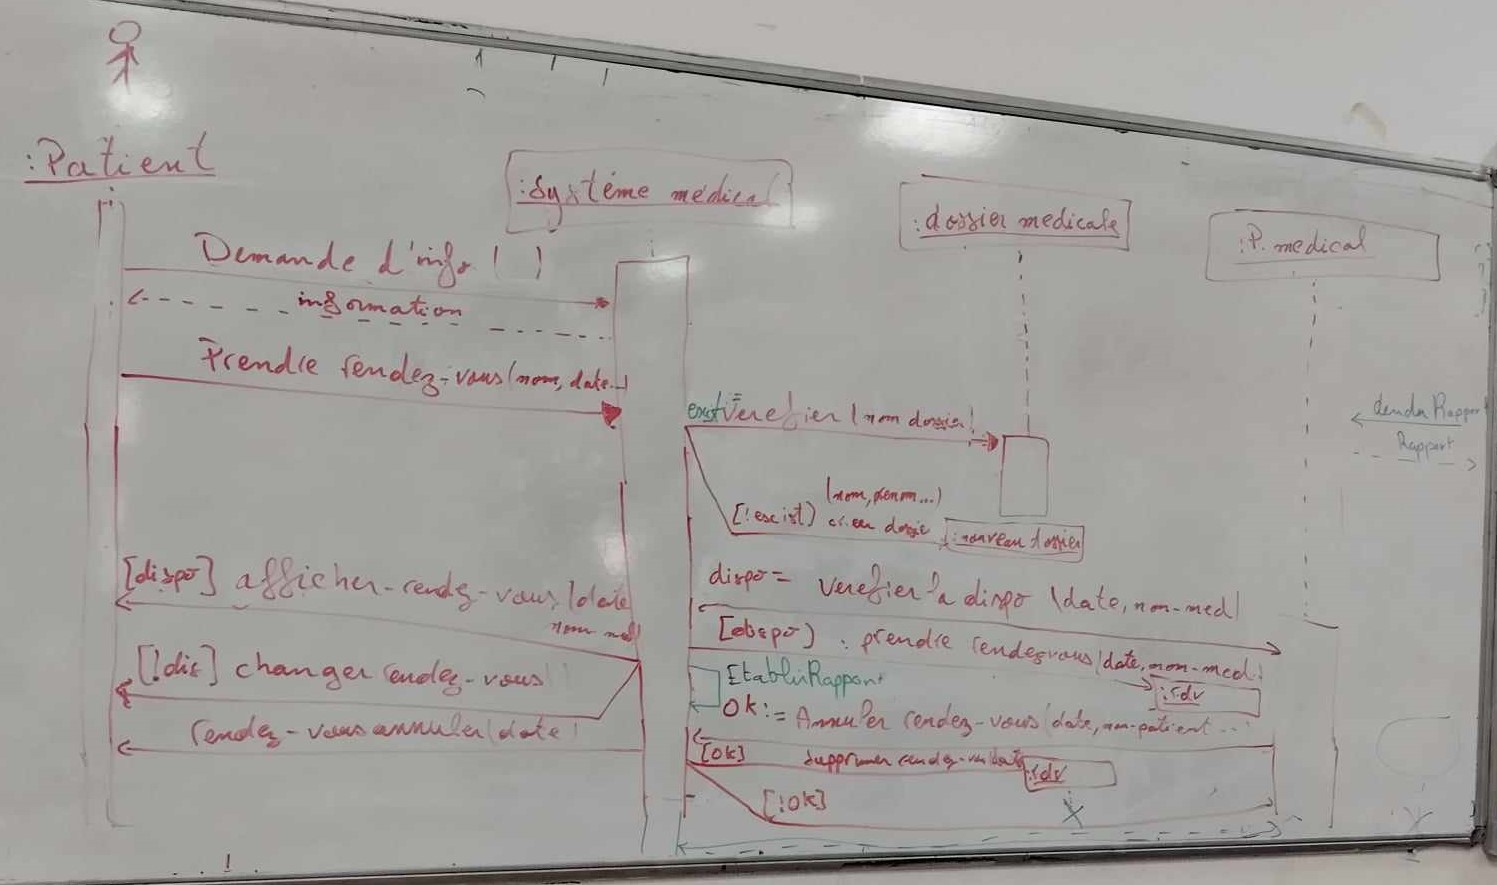 :Patient
:Système médical
:dossier medicale
:P. medical
Demande d'info ( )
information
Prendre rendez-vous (nom, date...)
exist = Verefier (nom dossier)
Rapport
(nom, prenom...)
[!excist) créer dossie
:nouveau dossier
[dispo] afficher-rendez-vous (date
nom med)
dispo = verefier la dispo (date, nom-med)
[dispo) : prendre rendezvous (date, nom-med)
:rdv
[!dis] changer rendez-vous ( )
Etablir Rapport
OK := Annuler rendez-vous (date, nom-patient...)
rendez-vous annuler (date)
[OK] supprimer rendez-vous (date)
:rdv
[!OK]